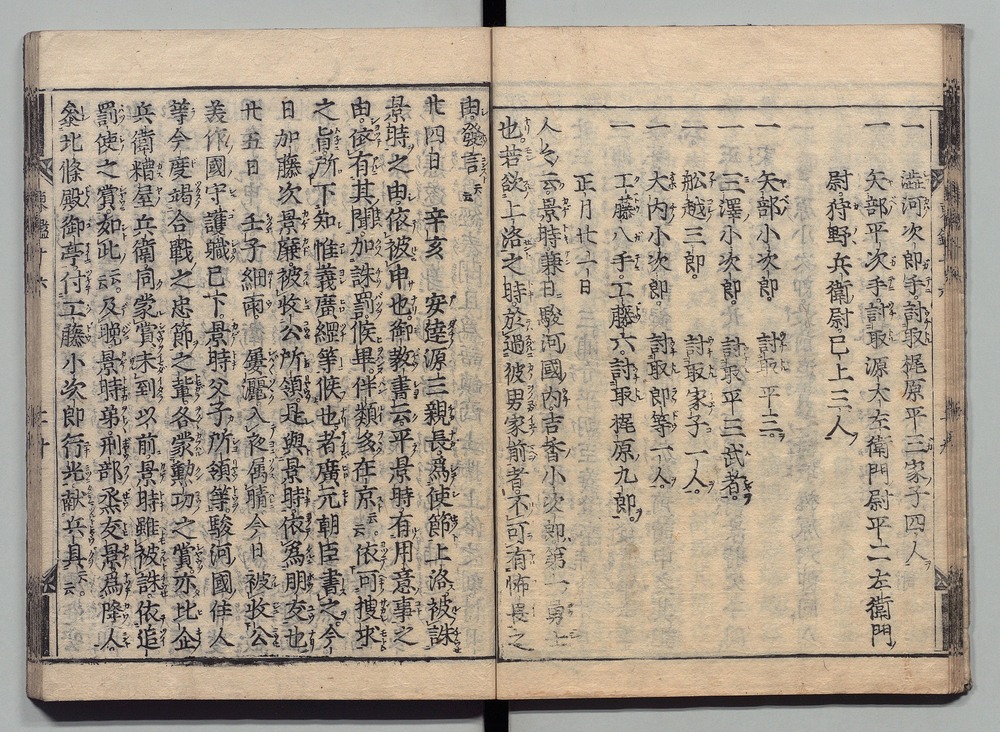 一 澁河次郎手討取梶原平三家子四人
一 矢部平次手討取源太左衛門尉平二左衛門
尉狩野兵衛尉已上三人
一 矢部小次郎 討取平三
一 三澤小次郎 討取平三武者
一 舩越三郎 討取家子一人
一 大内小次郎 討取郎等一人
一 工藤八手工藤六討取梶原九郎
正月廿一日
人々云景時兼日駿河國内吉香小次郎第一勇士
也若欲上洛之時於過彼男家前者不可有怖畏之
由發言云云
廿四日 辛亥 安達源三親長爲使節上洛被誅
景時之由依被申也御教書云平景時有用意事之
由依有其聞加誅罰候畢伴類多在京云云依可捜求
之旨所下知惟義廣綱等候也者廣元朝臣書之今
日加藤次景廉被收公所領是與景時依爲朋友也
廿五日 壬子 細雨屡灑入夜屬晴今日被收公
美作國守護職已下景時父子所領等駿河國住人
等今度竭合戰之忠節之輩各蒙勳功之賞亦比企
兵衛糟屋兵衛同蒙賞未到以前景時雖被誅依追
罰使之賞如此云云及晩景時弟刑部烝友景爲降人
參北條殿御亭付工藤小次郎行光献兵具云云
東鑑十六